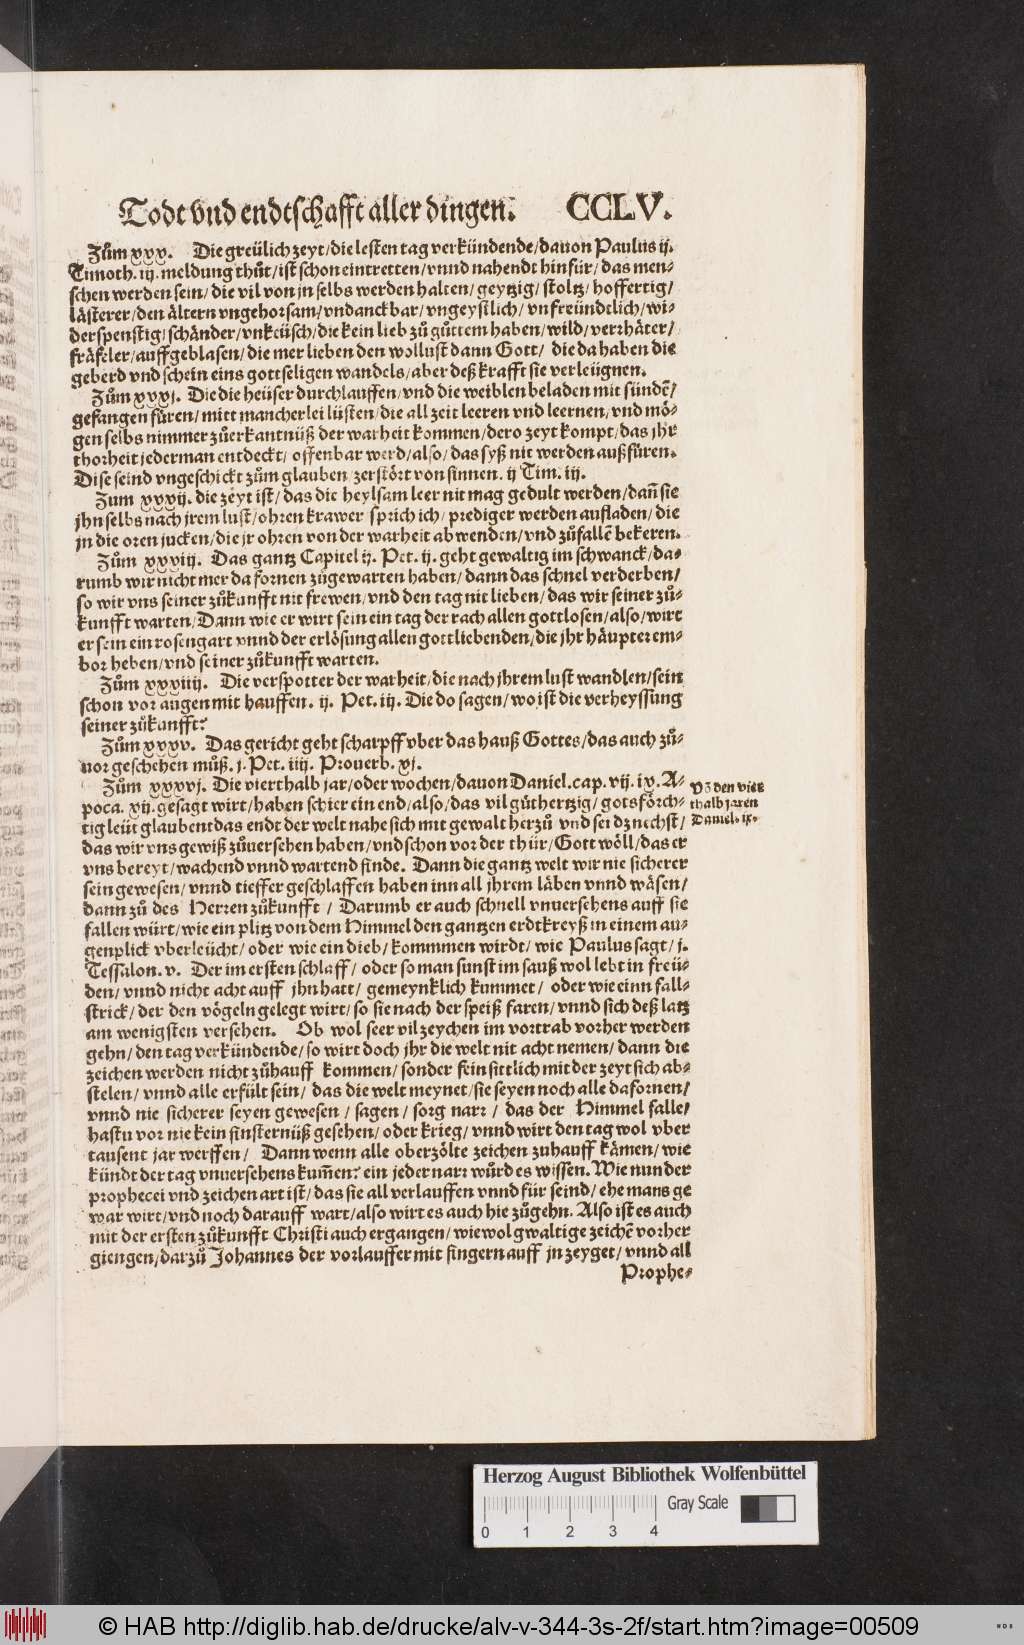 Todt vnd endtschafft aller dingen. CCLV.
Zům xxx. Die greülich zeyt/die lesten tag verkündende/dauon Paulus ij.
Timoth. iij. meldung thůt/ist schon eintretten/vnnd nahendt hinfür/das men-
schen werden sein/die vil von jn selbs werden halten/geytzig/stoltz/hoffertig/
lästerer/den ältern vngehorsam/vndanckbar/vngeystlich/vnfreündtlich/wi-
derspenstig/schänder/vnkeüsch/die kein lieb zů gůttem haben/wild/verrhäter/
fräfeler/auffgeblasen/die mer lieben den wollust dann Gott/ die da haben die
geberd vnd schein eins gottseligen wandels/aber deß krafft sie verleügnen.
Zům xxxj. Die die heüser durchlauffen/vnd die weiblen beladen mit sündẽ/
gefangen füren/mitt mancherlei lüsten/die all zeit leeren vnd leernen/vnd mö-
gen selbs nimmer zůerkantnüß der warheit kommen/dero zeyt kompt/das jhr
thorheit jederman entdeckt/offenbar werd/also/das syß nit werden außfüren.
Dise seind vngeschickt zům glauben/zerstört von sinnen. ij Tim. iij.
Zum xxxij. die zeyt ist/das die heylsam leer nit mag gedult werden/dañ sie
jhn selbs nach jrem lust/ohren krawer sprich ich/prediger werden aufladen/die
jn die oren jucken/die jr ohren von der warheit abwenden/vnd zůfallẽ bekeren.
Zům xxxiij. Das gantz Capitel ij. Pet. ij. geht gewaltig im schwanck/da-
rumb wir nicht mer da fornen zůgewarten haben/dann das schnel verderben/
so wir vns seiner zůkunfft nit frewen/vnd den tag nit lieben/das wir seiner zů-
kunfft warten/Dann wie er wirt sein ein tag der rach allen gottlosen/also/wirt
er sein ein rosengart vnnd der erlösung allen gottliebenden/die jhr häupter em-
bor heben/vnd seiner zůkunfft warten.
Zům xxxiiij. Die verspotter der warheit/die nach jhrem lust wandlen/sein
schon vor augen mit hauffen. ij. Pet. iij. Die do sagen/wo ist die verheyssung
seiner zůkunfft?
Zům xxxv. Das gericht geht scharpff vber das hauß Gottes/das auch zů-
uor geschehen můß. j. Pet. iiij. Prouerb. xj.
Zům xxxvj. Die vierthalb jar/oder wochen/dauon Daniel. cap. vij. ix. A-
poca. xij. gesagt wirt/haben schier ein end/also/das vil gůthertzig/gotsförch-
tig leüt glauben das endt der welt nahe sich mit gewalt herzů vnd sei dz nechst/
das wir vns gewiß zůuersehen haben/vnd schon vor der thür/Gott wöll/das er
vns bereyt/wachend vnnd wartend finde. Dann die gantz welt wir nie sicherer
sein gewesen/vnnd tieffer geschlaffen haben inn all jhrem läben vnnd wäsen/
dann zů des Herren zůkunfft/ Darumb er auch schnell vnuersehens auff sie
fallen würt/wie ein plitz von dem Himmel den gantzen erdtkreyß in einem au-
genplick vberleücht/oder wie ein dieb/kommmen wirdt/wie Paulus sagt/j.
Tessalon. v. Der im ersten schlaff/oder so man sunst im sauß wol lebt in freü-
den/vnnd nicht acht auff jhn hatt/gemeynklich kummet/ oder wie einn fall-
strick/der den vögeln gelegt wirt/so sie nach der speiß faren/vnnd sich deß latz
am wenigsten versehen. Ob wol seer vil zeychen im vortrab vorher werden
gehn/den tag verkündende/so wirt doch jhr die welt nit acht nemen/dann die
zeichen werden nicht zůhauff kommen/sonder fein sittlich mit der zeyt sich ab-
stelen/vnnd alle erfült sein/das die welt meynet/sie seyen noch alle dafornen/
vnnd nie sicherer seyen gewesen/sagen/sorg narr/das der Himmel falle/
hastu vor nie kein finsternüß gesehen/oder krieg/vnnd wirt den tag wol vber
tausent jar werffen/ Dann wenn alle oberzölte zeichen zuhauff kämen/wie
kündt der tag vnuersehens kum̃en? ein jeder narr wůrd es wissen. Wie nun der
prophecei vnd zeichen art ist/das sie all verlauffen vnnd für seind/ehe mans ge
war wirt/vnd noch darauff wart/also wirt es auch hie zůgehn. Also ist es auch
mit der ersten zůkunfft Christi auch ergangen/wiewol gwaltige zeichẽ vorher
giengen/darzů Johannes der vorlauffer mit fingern auff jn zeyget/vnnd all
Prophe-
Võ den vier
thalb jaren
Daniel. ix.
Herzog August Bibliothek Wolfenbüttel
Gray Scale
0 1 2 3 4
© HAB http://diglib.hab.de/drucke/alv-v-344-3s-2f/start.htm?image=00509